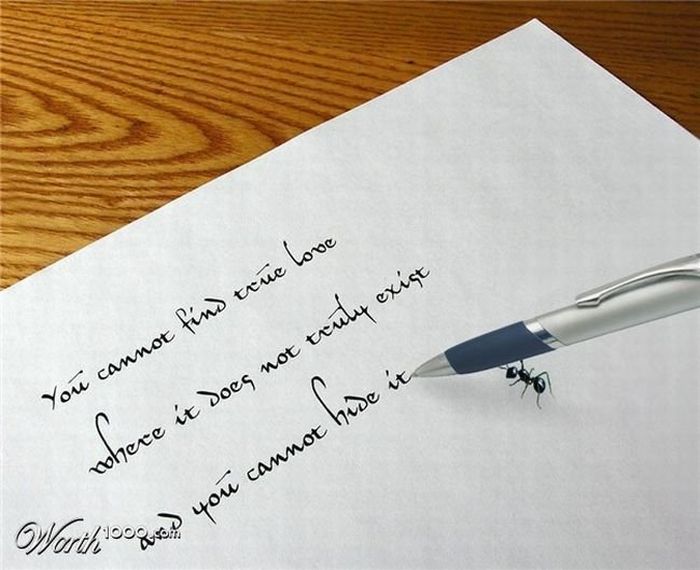 You cannot find true love
where it does not truly exist
and you cannot hide it
Worth1000.com